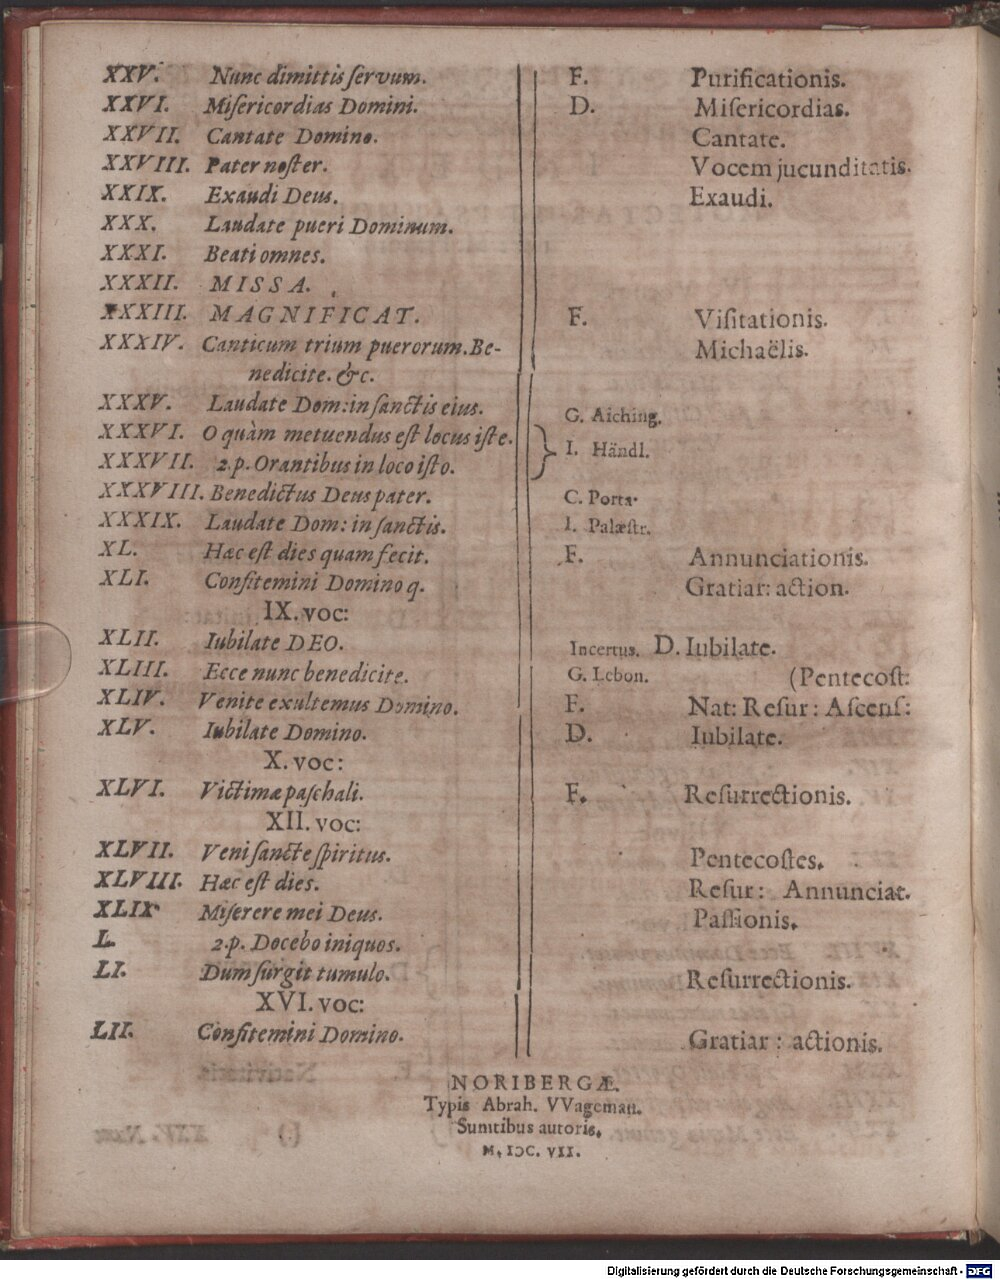 XXV. Nunc dimittis ſervum. F. Purificationis.
XXVI. Miſericordias Domini. D. Miſericordias.
XXVII. Cantate Domino. Cantate.
XXVIII. Pater noſter. Vocem jucunditatis.
XXIX. Exaudi Deus. Exaudi.
XXX. Laudate pueri Dominum.
XXXI. Beati omnes.
XXXII. MISSA.
XXXIII. MAGNIFICAT. F. Viſitationis.
XXXIV. Canticum trium puerorum. Be- Michaëlis.
nedicite. &c.
XXXV. Laudate Dom: in ſanctis eius. G. Aiching.
XXXVI. O quàm metuendus eſt locus iſte. } I. Händl.
XXXVII. 2.p. Orantibus in loco iſto.
XXXVIII. Benedictus Deus pater. C. Porta.
XXXIX. Laudate Dom: in ſanctis. I. Palæſtr.
XL. Hæc eſt dies quam fecit. F. Annunciationis.
XLI. Confitemini Domino q. Gratiar: action.
IX. voc:
XLII. Iubilate DEO. Incertus. D. Iubilate.
XLIII. Ecce nunc benedicite. G. Lebon. (Pentecoſt:
XLIV. Venite exultemus Domino. F. Nat: Reſur: Aſcenſ:
XLV. Iubilate Domino. D. Iubilate.
X. voc:
XLVI. Victimæ paſchali. F. Reſurrectionis.
XII. voc:
XLVII. Veni ſancte ſpiritus. Pentecoſtes.
XLVIII. Hæc eſt dies. Reſur: Annunciat.
XLIX. Miſerere mei Deus. Paſſionis.
L. 2.p. Docebo iniquos.
LI. Dum ſurgit tumulo. Reſurrectionis.
XVI. voc:
LII. Confitemini Domino. Gratiar: actionis.
NORIBERGÆ.
Typis Abrah. VVageman.
Sumtibus autoris.
M. IↃC. VII.
Digitalisierung gefördert durch die Deutsche Forschungsgemeinschaft - DFG